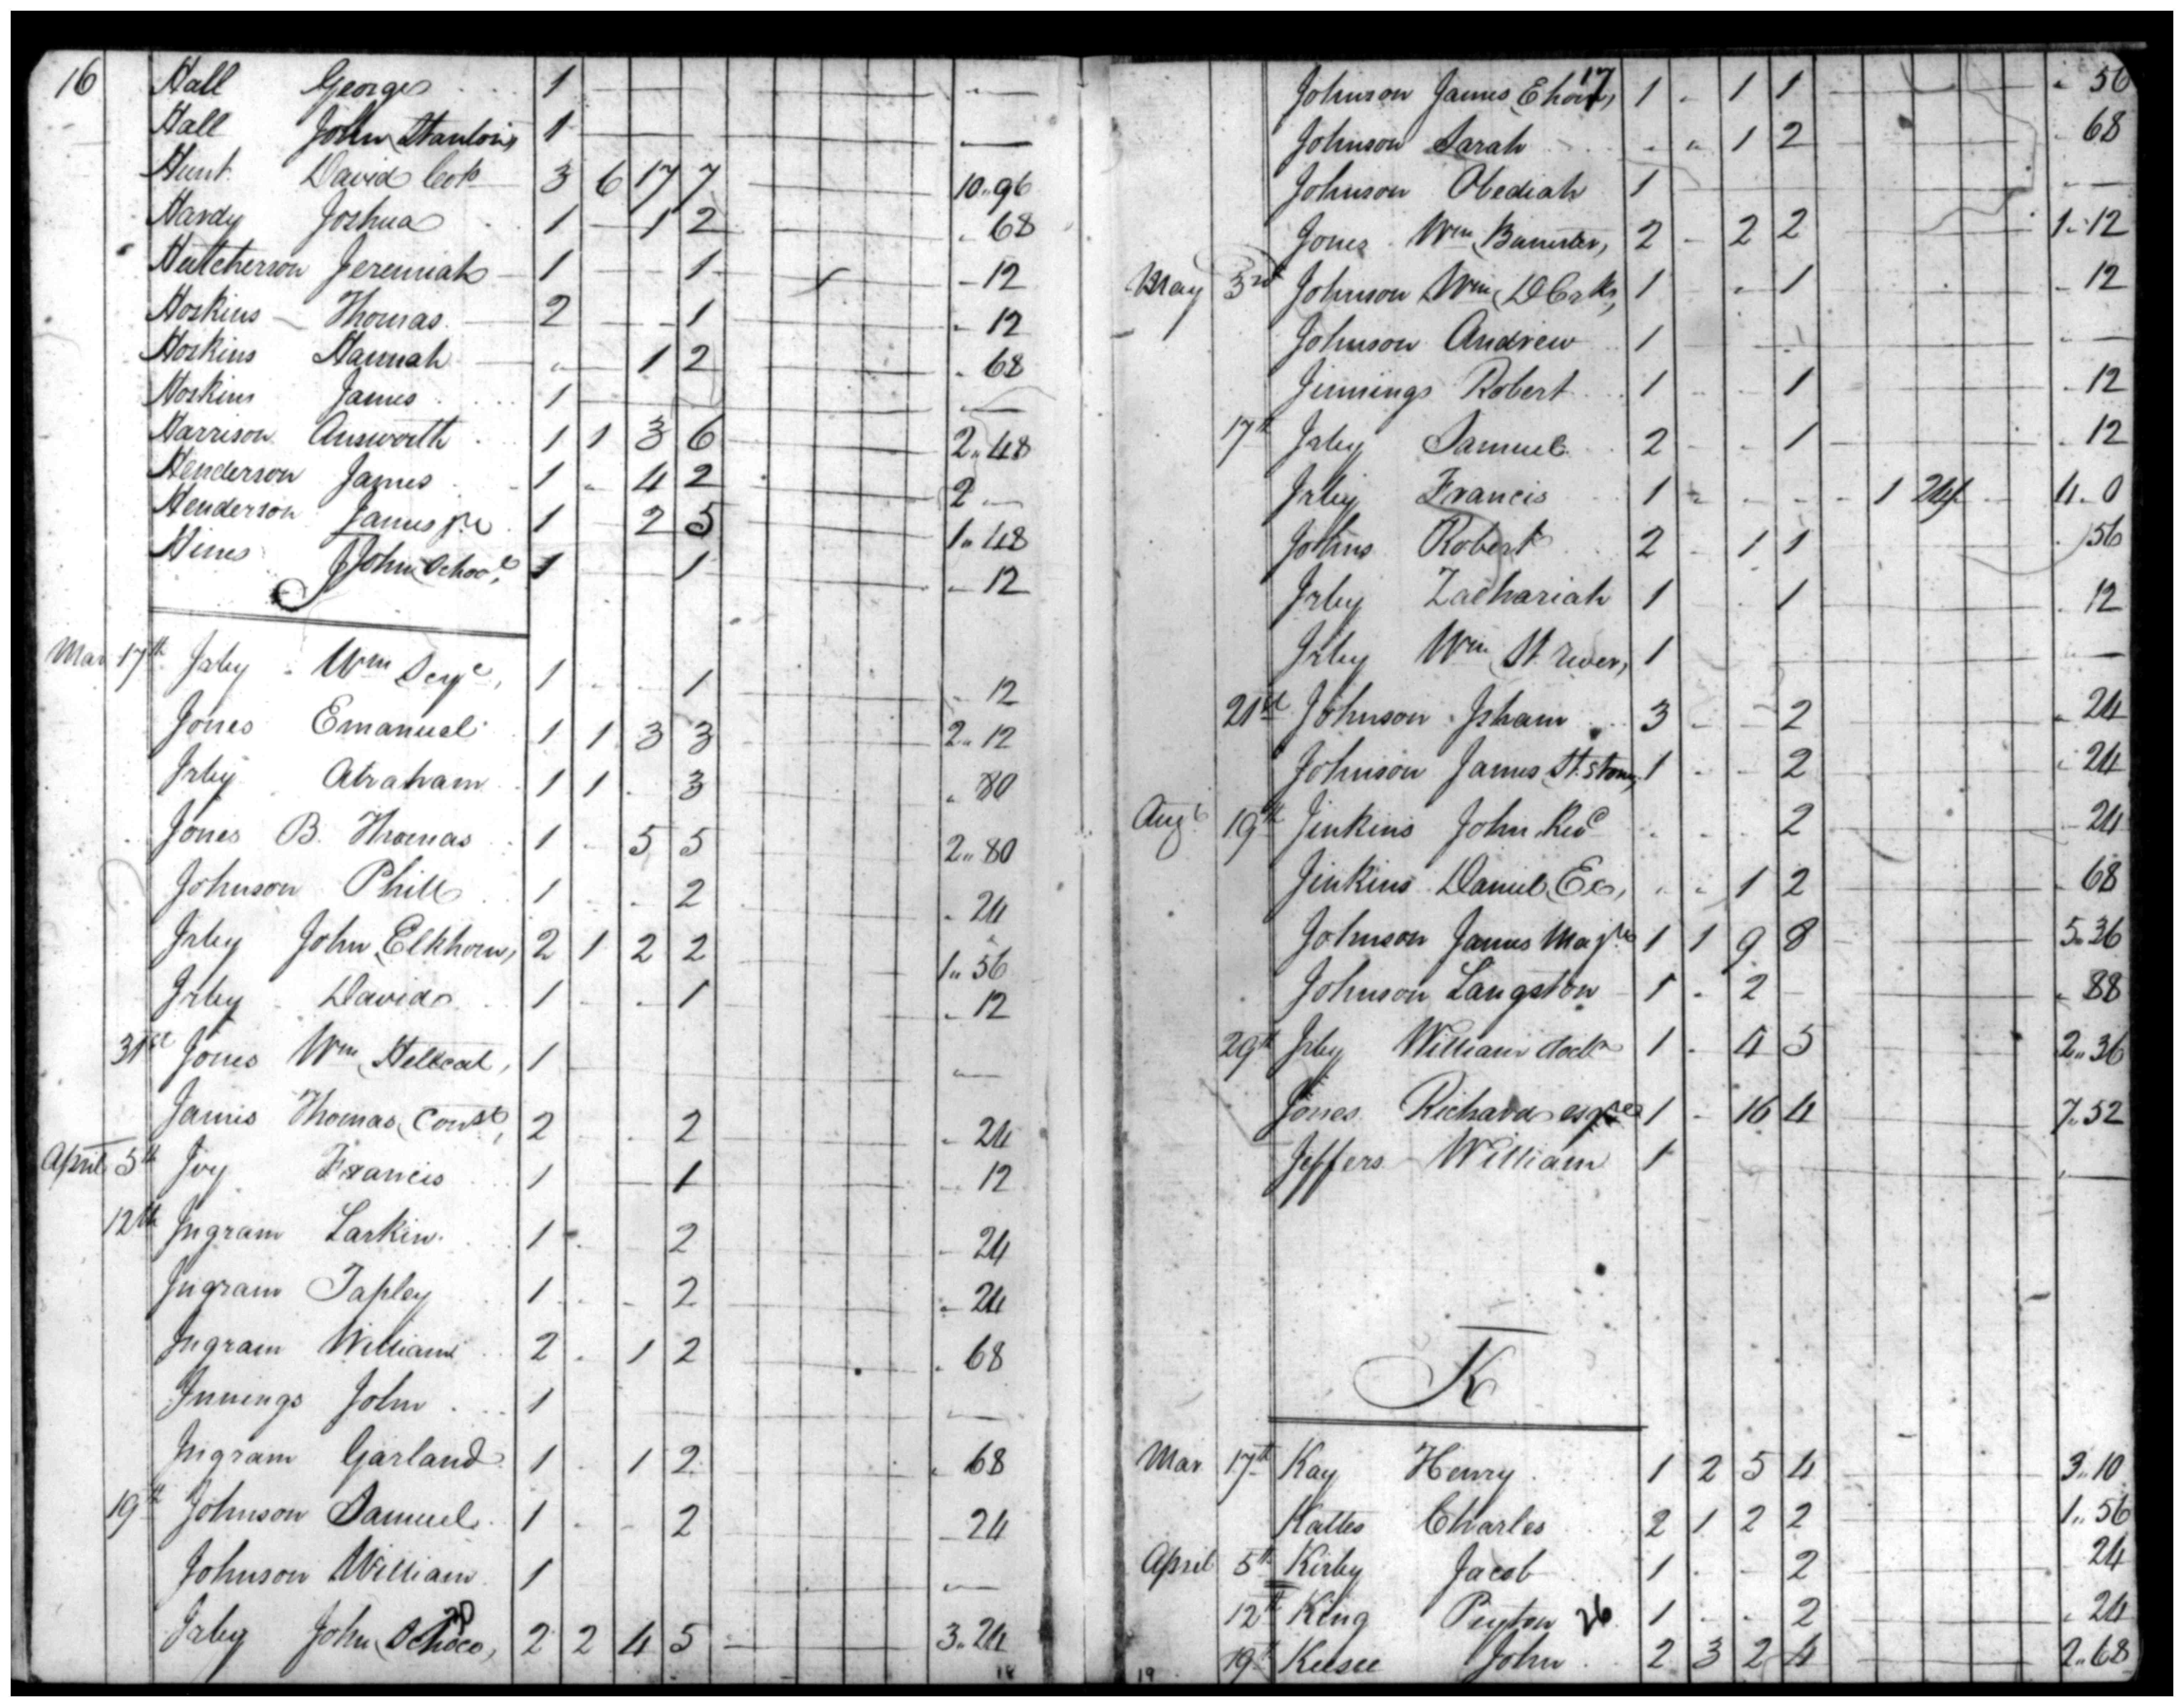 16 Hall George 1
Hall John (Stanton) 1
Hunt David Cok 3 6 17 7 10.. 96
Hardy Joshua 1 1 2 68
Hutcherson Jeremiah 1 1 12
Hoskins Thomas 2 1 12
Hoskins Hannah 1 2 68
Hoskins James 1
Harrison Answorth 1 1 3 6 2.. 48
Henderson James 1 4 2 2
Henderson James jr 1 2 5 1.. 48
Hines John School 1 1 12
J
Mar 17th Irby Wm 1 1 12
Jones Emanuel 1 1 3 3 2.. 12
Irby Abraham 1 1 3 80
Jones B. Thomas 1 5 5 2.. 80
Johnson Phill 1 2 24
Irby John (Elkhorn) 2 1 2 2 1.. 56
Irby David 1 1 12
31st Jones Wm (Hellcat) 1
James Thomas (Const) 2 2 24
April 5th Ivy Francis 1 1 12
12th Ingram Larkin 1 2 24
Ingram Tapley 1 2 24
Ingram William 2 1 2 68
Innings John 1
Ingram Garland 1 1 2 68
19th Johnson Samuel 1 2 24
Johnson William 1
Irby John 2 2 4 5 3.. 24
18
17
Johnson James (Ehorn) 1 1 1 56
Johnson Sarah 1 2 68
Johnson Obediah 1
Jones Wm (Banister) 2 2 2 1.. 12
May 3rd Johnson Wm 1 1 12
Johnson Andrew 1
Jinnings Robert 1 1 12
17th Irby Samuel 2 1 12
Irby Francis 1 1 24 4.. 0
Johns Robert 2 1 1 56
Irby Zachariah 1 1 12
Irby Wm (St. river) 1
21st Johnson Isham 3 2 24
Johnson James (St. stone) 1 2 24
Augt 19th Jinkins John Revd 2 24
Jinkins Daniel (Ex) 1 2 68
Johnson James Majr 1 1 9 8 5.. 36
Johnson Langston 1 2 88
29th Irby William doctr 1 4 5 2.. 36
Jones Richard esqr 1 16 4 7.. 52
Jeffers William 1
K
Mar 17th Kay Henry 1 2 5 4 3.. 10
Kattes Charles 2 1 2 2 1.. 56
April 5th Kirby Jacob 1 2 24
12th King Peyton 26 1 2 24
19 19th Keesee John 2 3 2 4 2.. 68